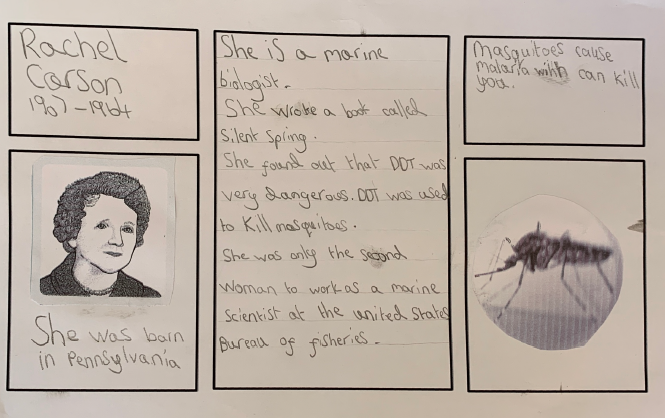 Rachel
Carson
1907-1964
She was born
in Pennsylvania
She is a marine
biologist.
She wroke a book called
Silent Spring.
She found out that DDT was
very dangerous. DDT was used
to Kill mosquitoes.
She was only the second
Woman to work as a marine
Scientist at the united States
Bureau of fisheries.
Mosquitoes cause
malaria with can kill
you.